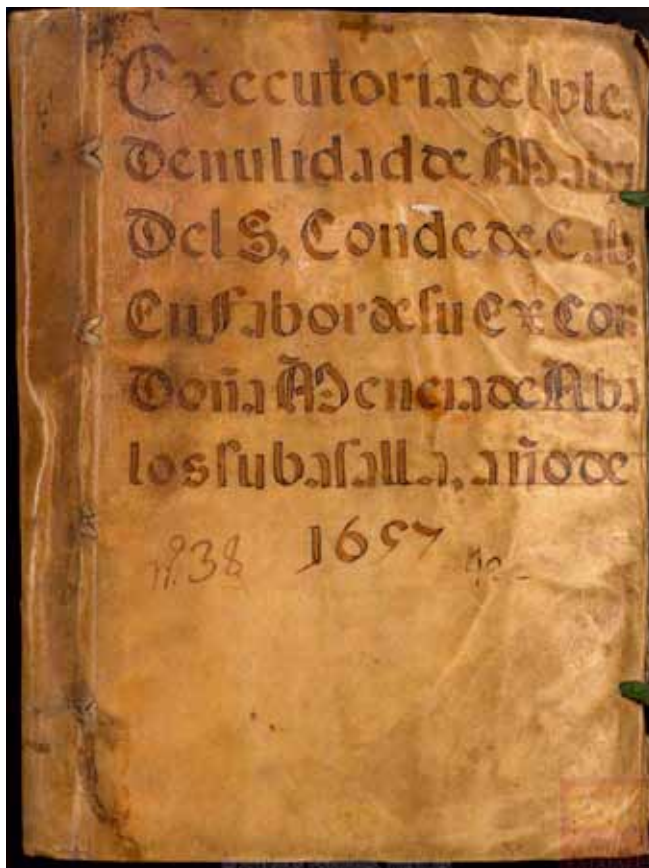 Executoria del ple.
De nulidad de Matri
Del S, Conde de Cab,
En fabor de su Ex Con
Doña Mencia de Aba
los su basalla, año de
nº. 38 1657